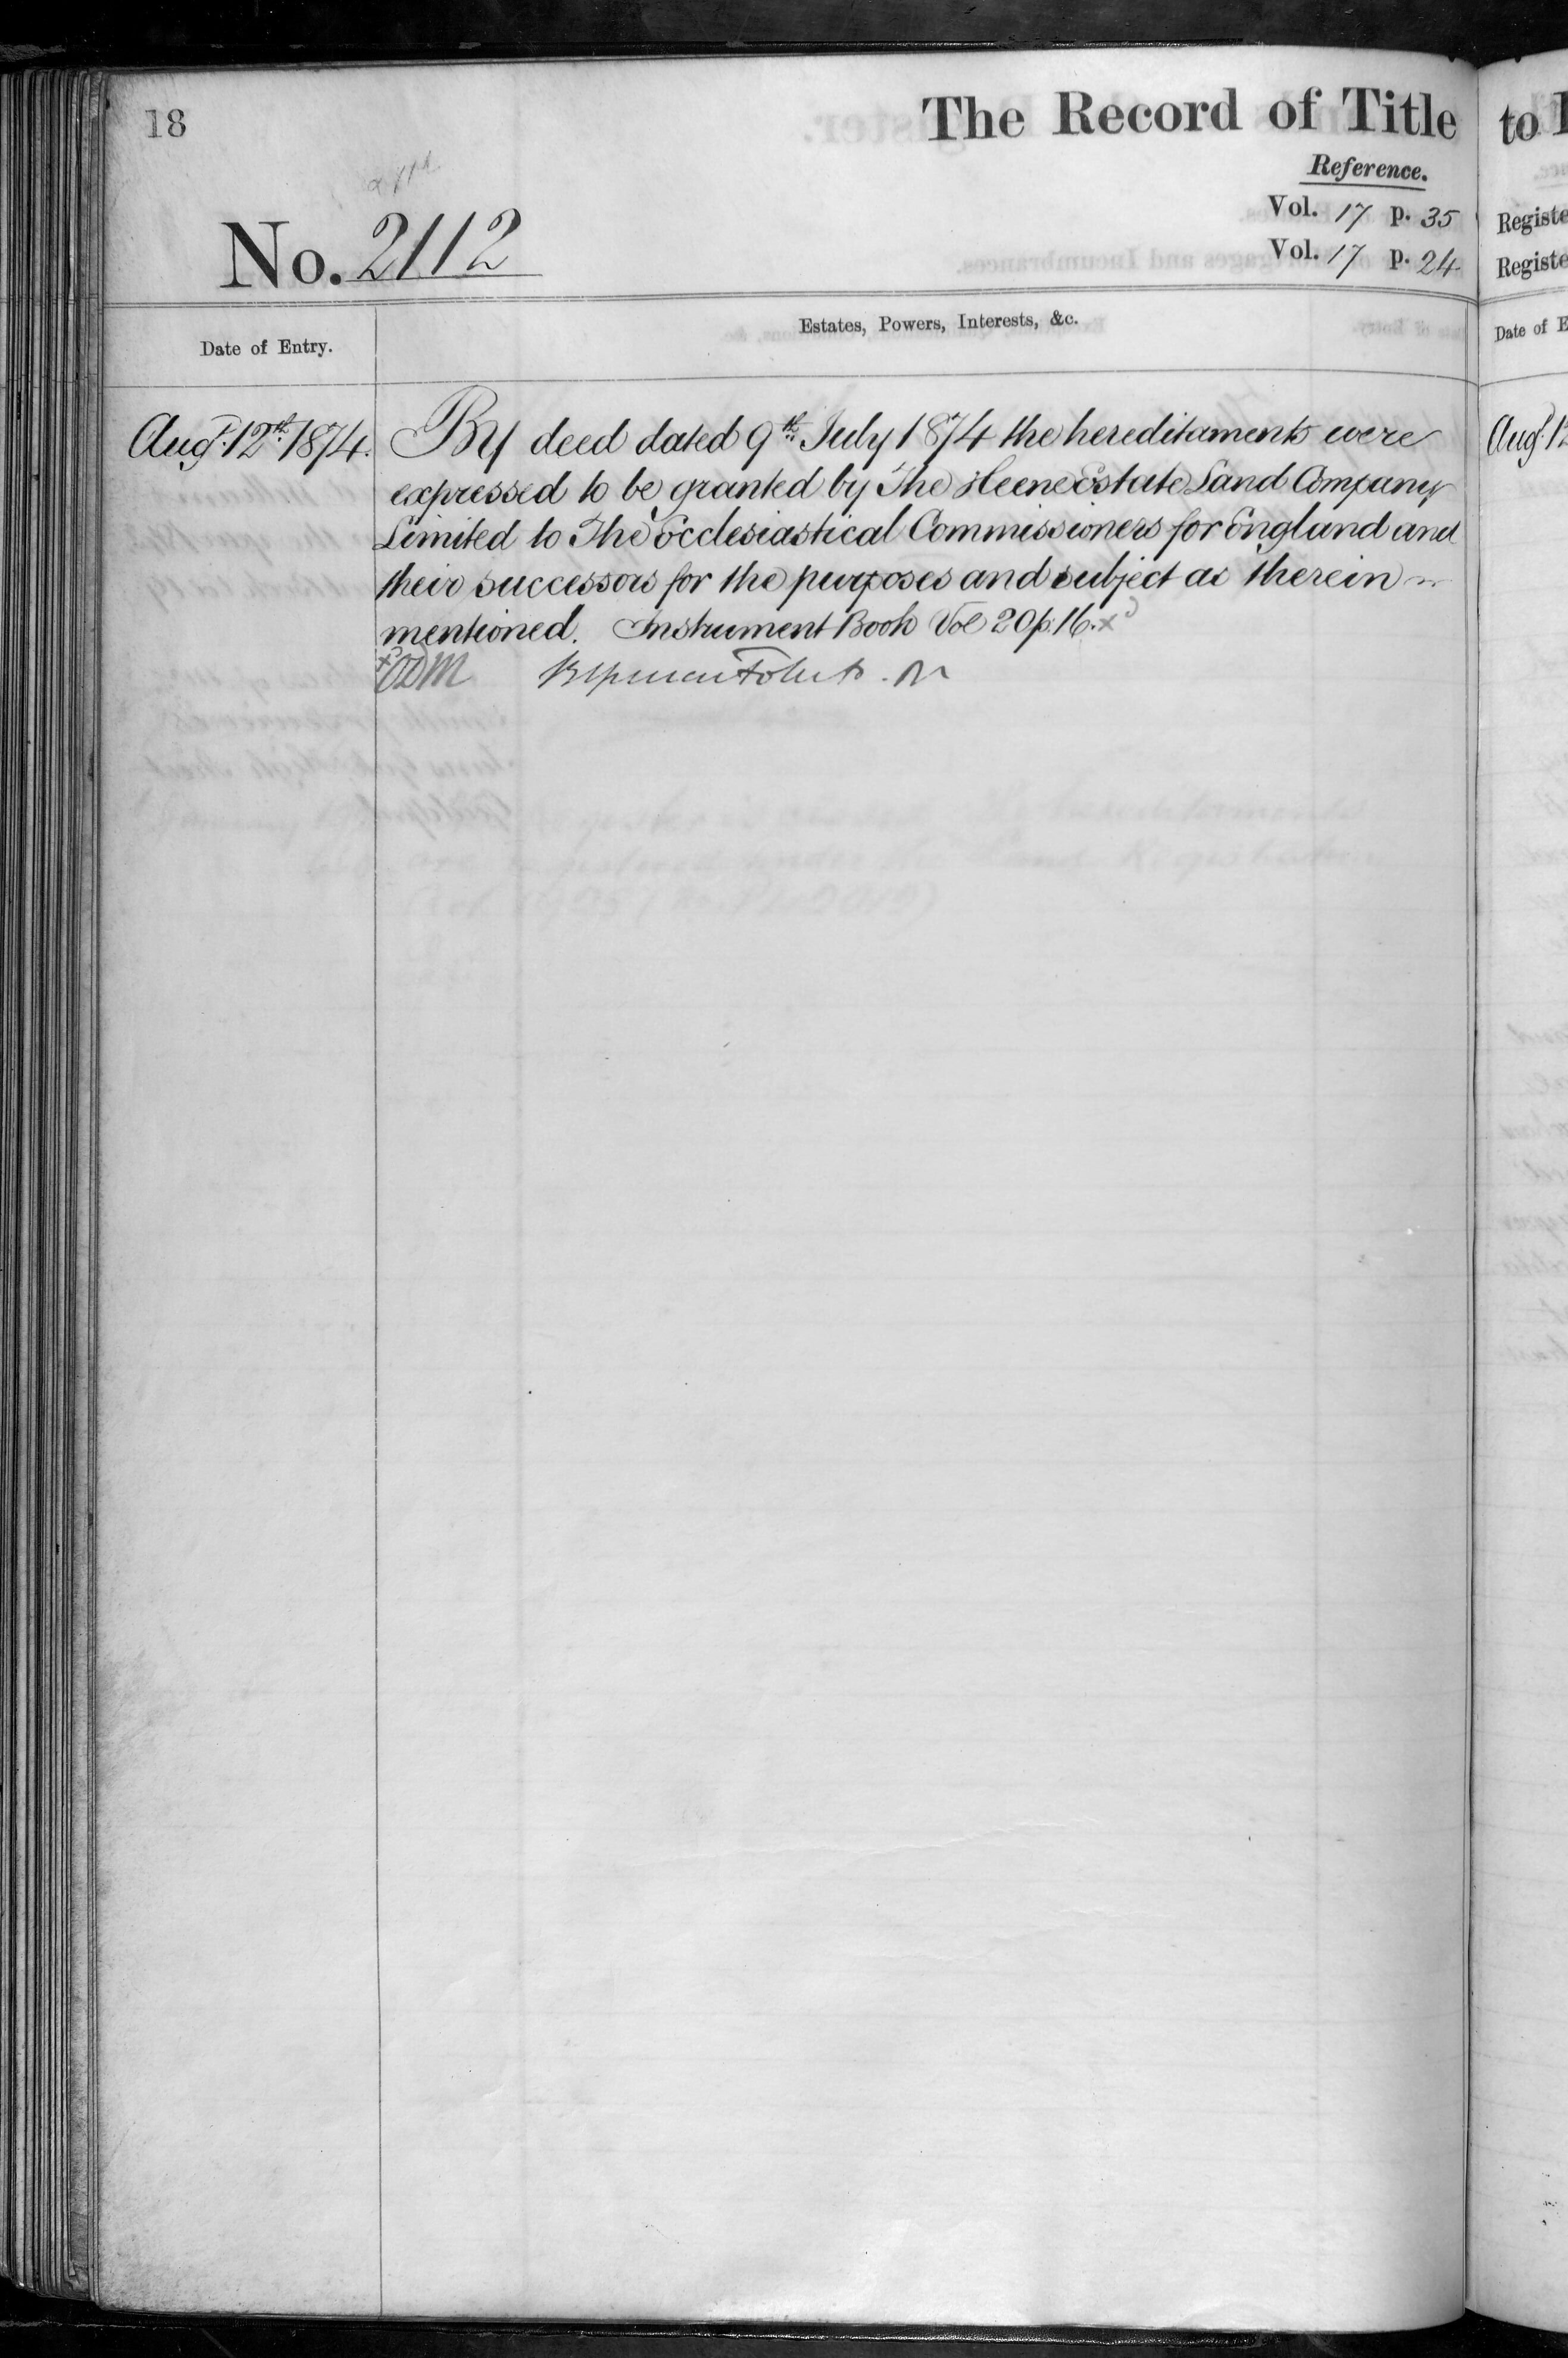 18
The Record of Title
Reference.
No. 2112
Vol. 17 p. 35
Vol. 17 p. 24
Date of Entry.
Estates, Powers, Interests, &c.
Augt. 12th. 1874.
By deed dated 9th. July 1874 the hereditaments were
expressed to be granted by The Heene Estate Land Company
Limited to The Ecclesiastical Commissioners for England and
their successors for the purposes and subject as therein
mentioned. Instrument Book Vol 20 p. 16. x
to
Registe
Registe
Date of E
Augt. 12